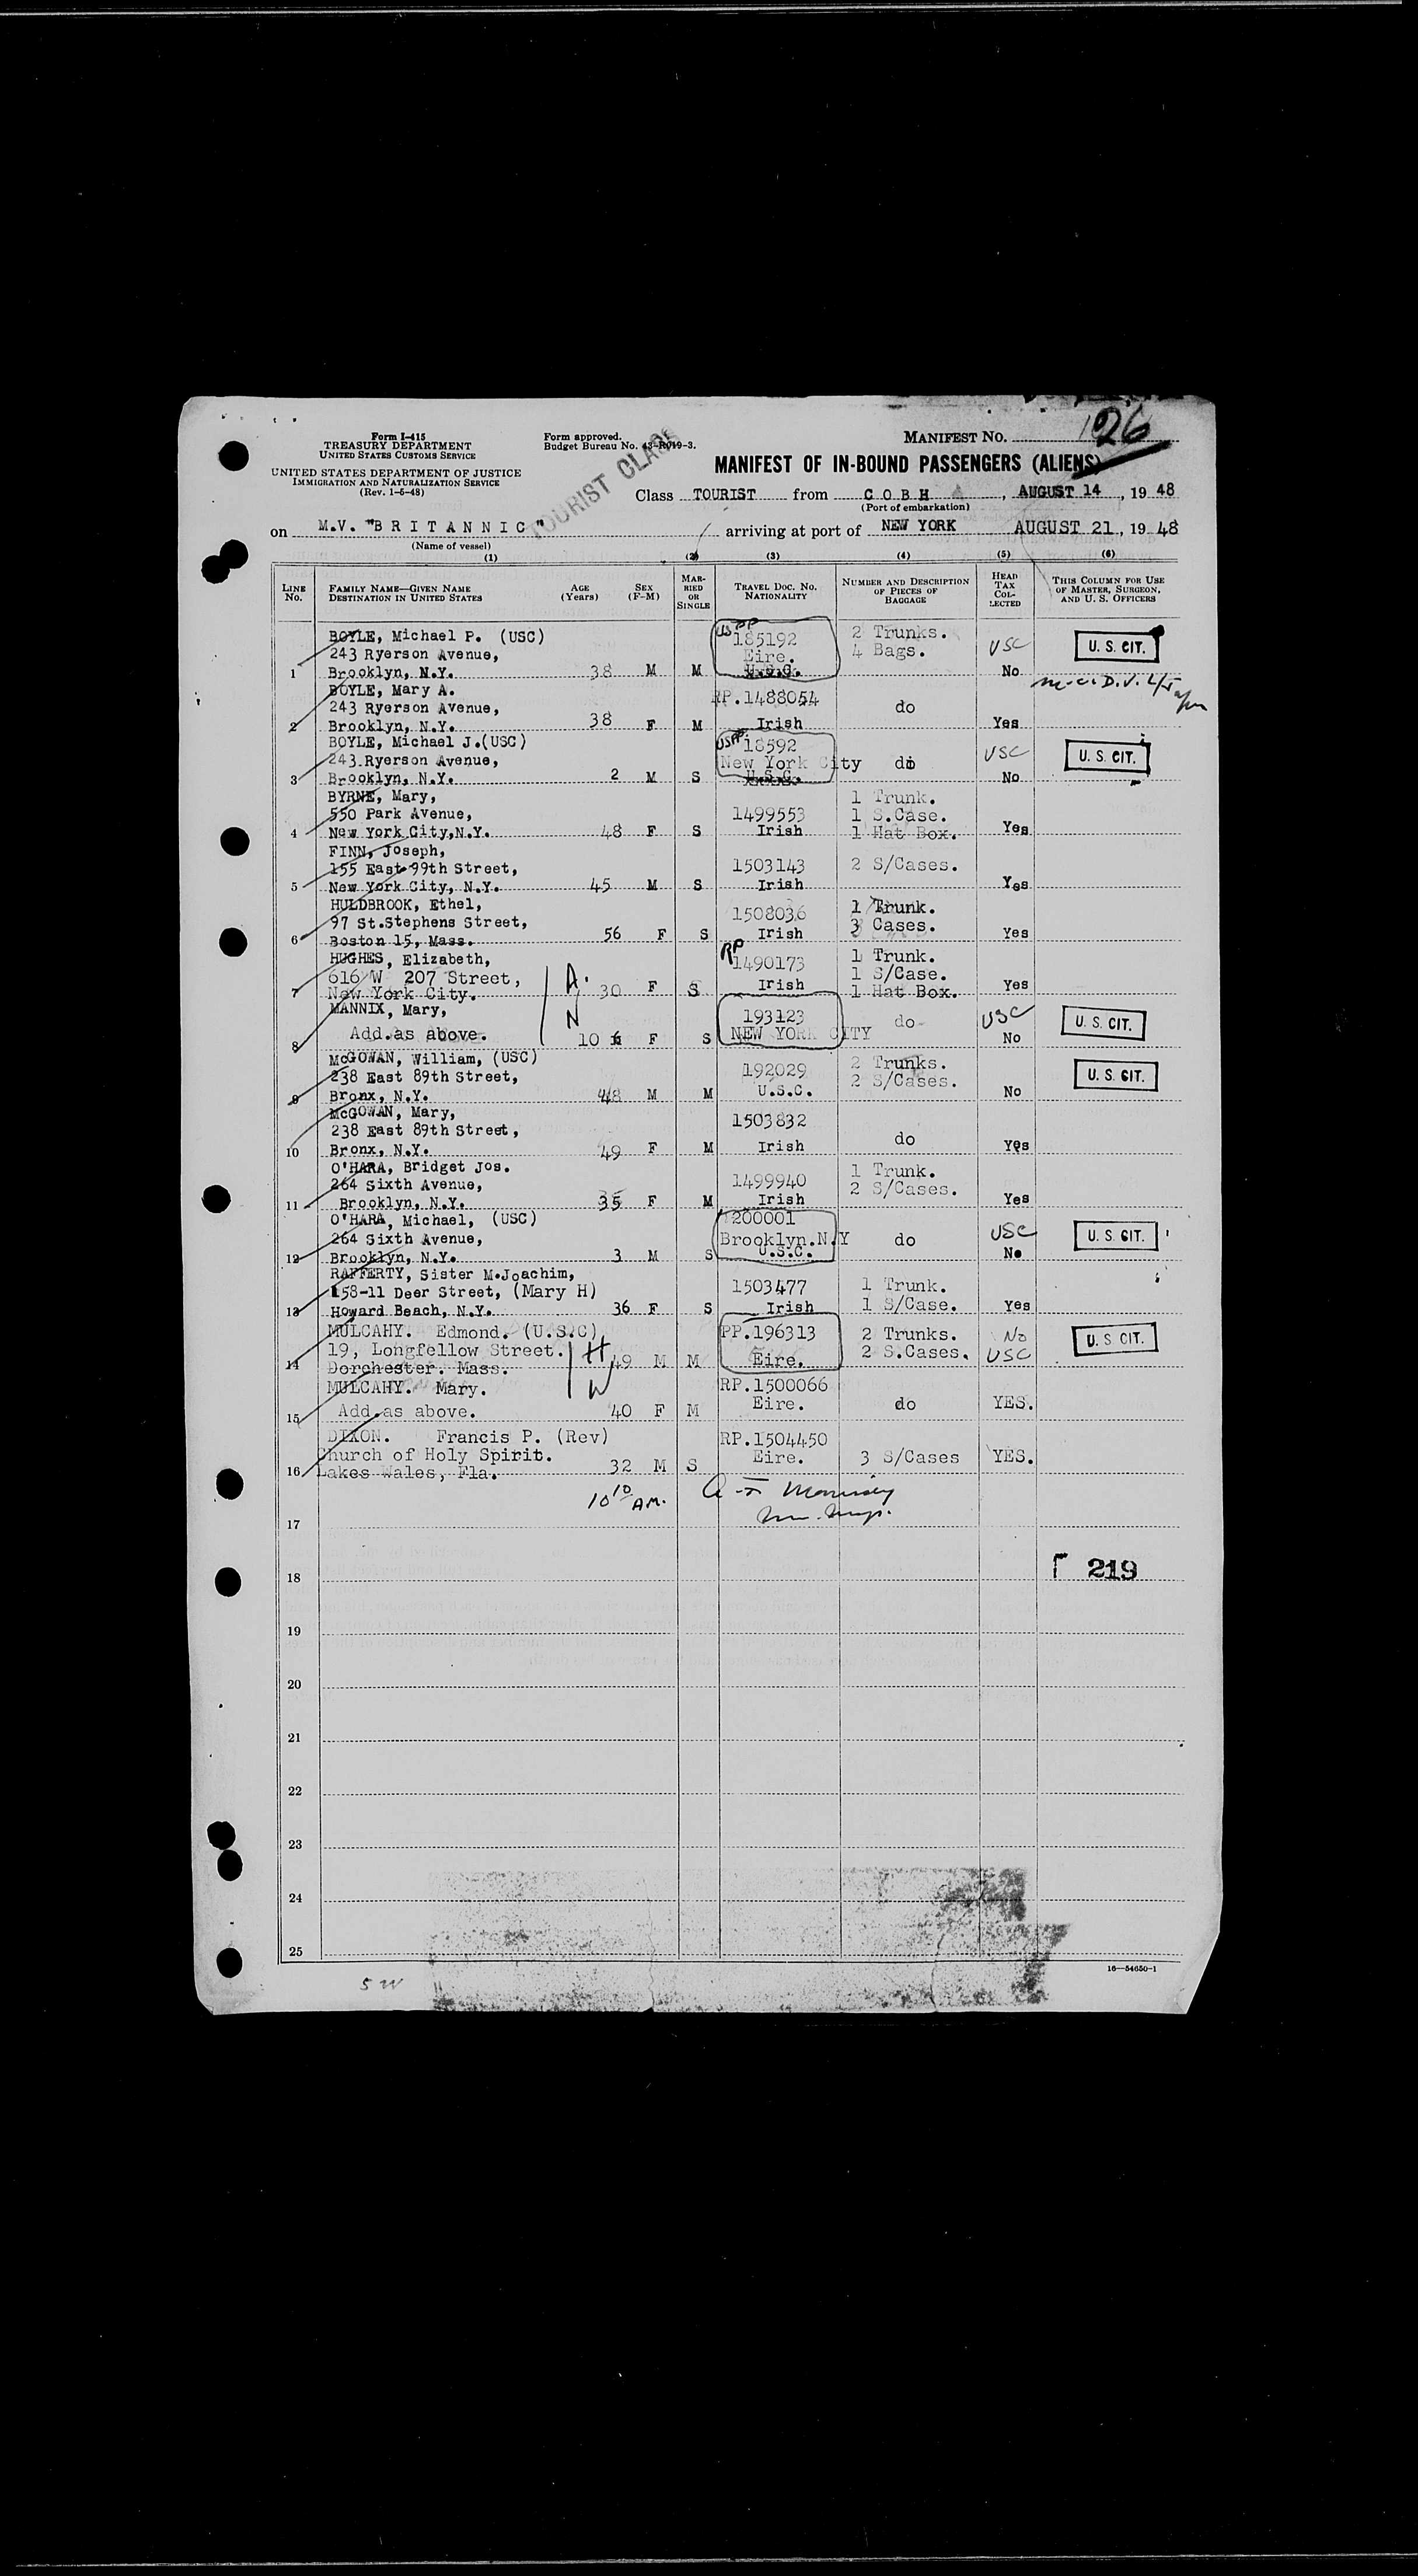 Form I-415
TREASURY DEPARTMENT
UNITED STATES CUSTOMS SERVICE
UNITED STATES DEPARTMENT OF JUSTICE
IMMIGRATION AND NATURALIZATION SERVICE
(Rev. 1-6-48)
Form approved.
Budget Bureau No. 43-R019-3.
TOURIST CLASS
MANIFEST No. 26
MANIFEST OF IN-BOUND PASSENGERS (ALIENS)
Class TOURIST from COBH, AUGUST 14, 1948
(Port of embarkation)
on M.V. "BRITANNIC" arriving at port of NEW YORK AUGUST 21, 1948
(Name of vessel)
(1) (2) (3) (4) (5) (6)
LINE No. FAMILY NAME—GIVEN NAME DESTINATION IN UNITED STATES AGE (Years) SEX (F-M) MARRIED OR SINGLE TRAVEL DOC. NO. NATIONALITY NUMBER AND DESCRIPTION OF PIECES OF BAGGAGE HEAD TAX COLLECTED THIS COLUMN FOR USE OF MASTER, SURGEON, AND U. S. OFFICERS
BOYLE, Michael P. (USC) USPP 185192 2 Trunks. USC U. S. CIT.
243 Ryerson Avenue, Eire. 4 Bags.
1 Brooklyn, N.Y. 38 M M U.S.C. No
BOYLE, Mary A. RP.1488054
243 Ryerson Avenue, do
2 Brooklyn, N.Y. 38 F M Irish Yes
BOYLE, Michael J.(USC) USPP. 18592 USC U. S. CIT.
243 Ryerson Avenue, New York City do
3 Brooklyn, N.Y. 2 M S U.S.C. No
BYRNE, Mary, 1 Trunk.
550 Park Avenue, 1499553 1 S.Case.
4 New York City,N.Y. 48 F S Irish 1 Hat Box. Yes
FINN, Joseph,
155 East 99th Street, 1503143 2 S/Cases.
5 New York City, N.Y. 45 M S Irish Yes
HULDBROOK, Ethel, 1 Trunk.
97 St.Stephens Street, 1508036 3 Cases.
6 Boston 15, Mass. 56 F S Irish Yes
HUGHES, Elizabeth, RP 1490173 1 Trunk.
616 W 207 Street, A. 1 S/Case.
7 New York City. 30 F S Irish 1 Hat Box. Yes
MANNIX, Mary, N 193123 do USC U. S. CIT.
8 Add.as above. 10 F S NEW YORK CITY No
McGOWAN, William, (USC) 192029 2 Trunks. U. S. CIT.
238 East 89th Street, 2 S/Cases.
9 Bronx, N.Y. 48 M M U.S.C. No
McGOWAN, Mary, 1503832
238 East 89th Street, do
10 Bronx, N.Y. 49 F M Irish Yes
O'HARA, Bridget Jos. 1 Trunk.
264 Sixth Avenue, 1499940 2 S/Cases.
11 Brooklyn, N.Y. 35 F M Irish Yes
O'HARA, Michael, (USC) 200001 USC U. S. CIT.
264 Sixth Avenue, Brooklyn.N.Y do
12 Brooklyn, N.Y. 3 M S U.S.C. No
RAFFERTY, Sister M.Joachim, 1503477 1 Trunk.
158-11 Deer Street, (Mary H)
13 Howard Beach, N.Y. 36 F S Irish 1 S/Case. Yes
MULCAHY. Edmond. (U.S.C) PP.196313 2 Trunks. No U. S. CIT.
19, Longfellow Street. H 2 S.Cases. USC
14 Dorchester. Mass. 49 M M Eire.
MULCAHY. Mary. W RP.1500066
15 Add.as above. 40 F M Eire. do YES.
DIXON. Francis P. (Rev) RP.1504450
Church of Holy Spirit. Eire. 3 S/Cases YES.
16 Lakes Wales, Fla. 32 M S
10 10 AM.
17
18 219
19
20
21
22
23
24
25
16—54650-1
5 W